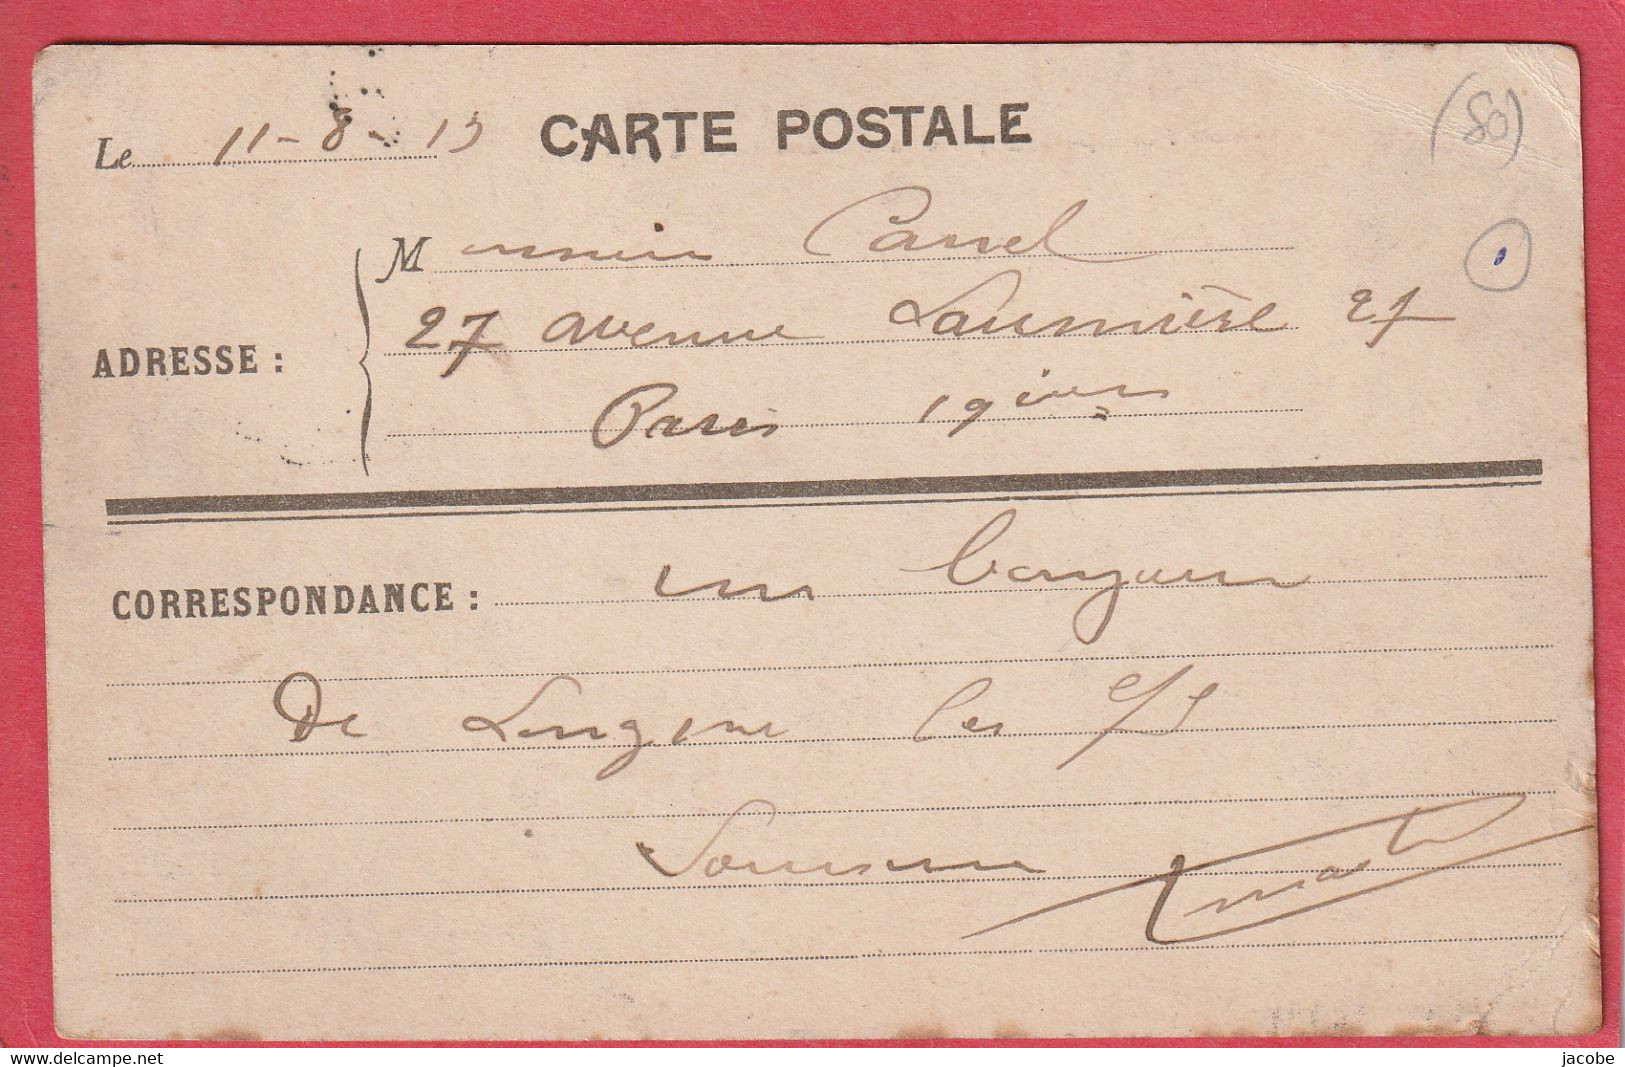 Le 11-8-13 CARTE POSTALE (80)
Monsieur Canel
ADRESSE : 27 avenue Laumière 27
Paris 19 ième
CORRESPONDANCE : un bonjour
De Longueau les
Souvenir
www.delcampe.net
jacobe